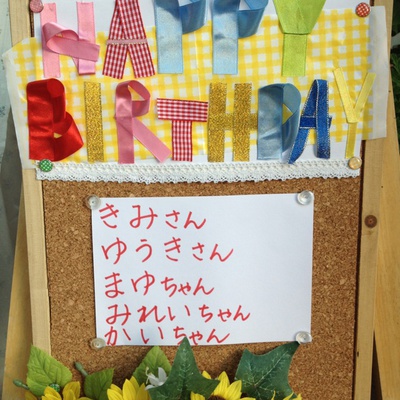 HAPPY
BIRTHDAY
きみさん
ゆうきさん
まゆちゃん
みれいちゃん
かいちゃん